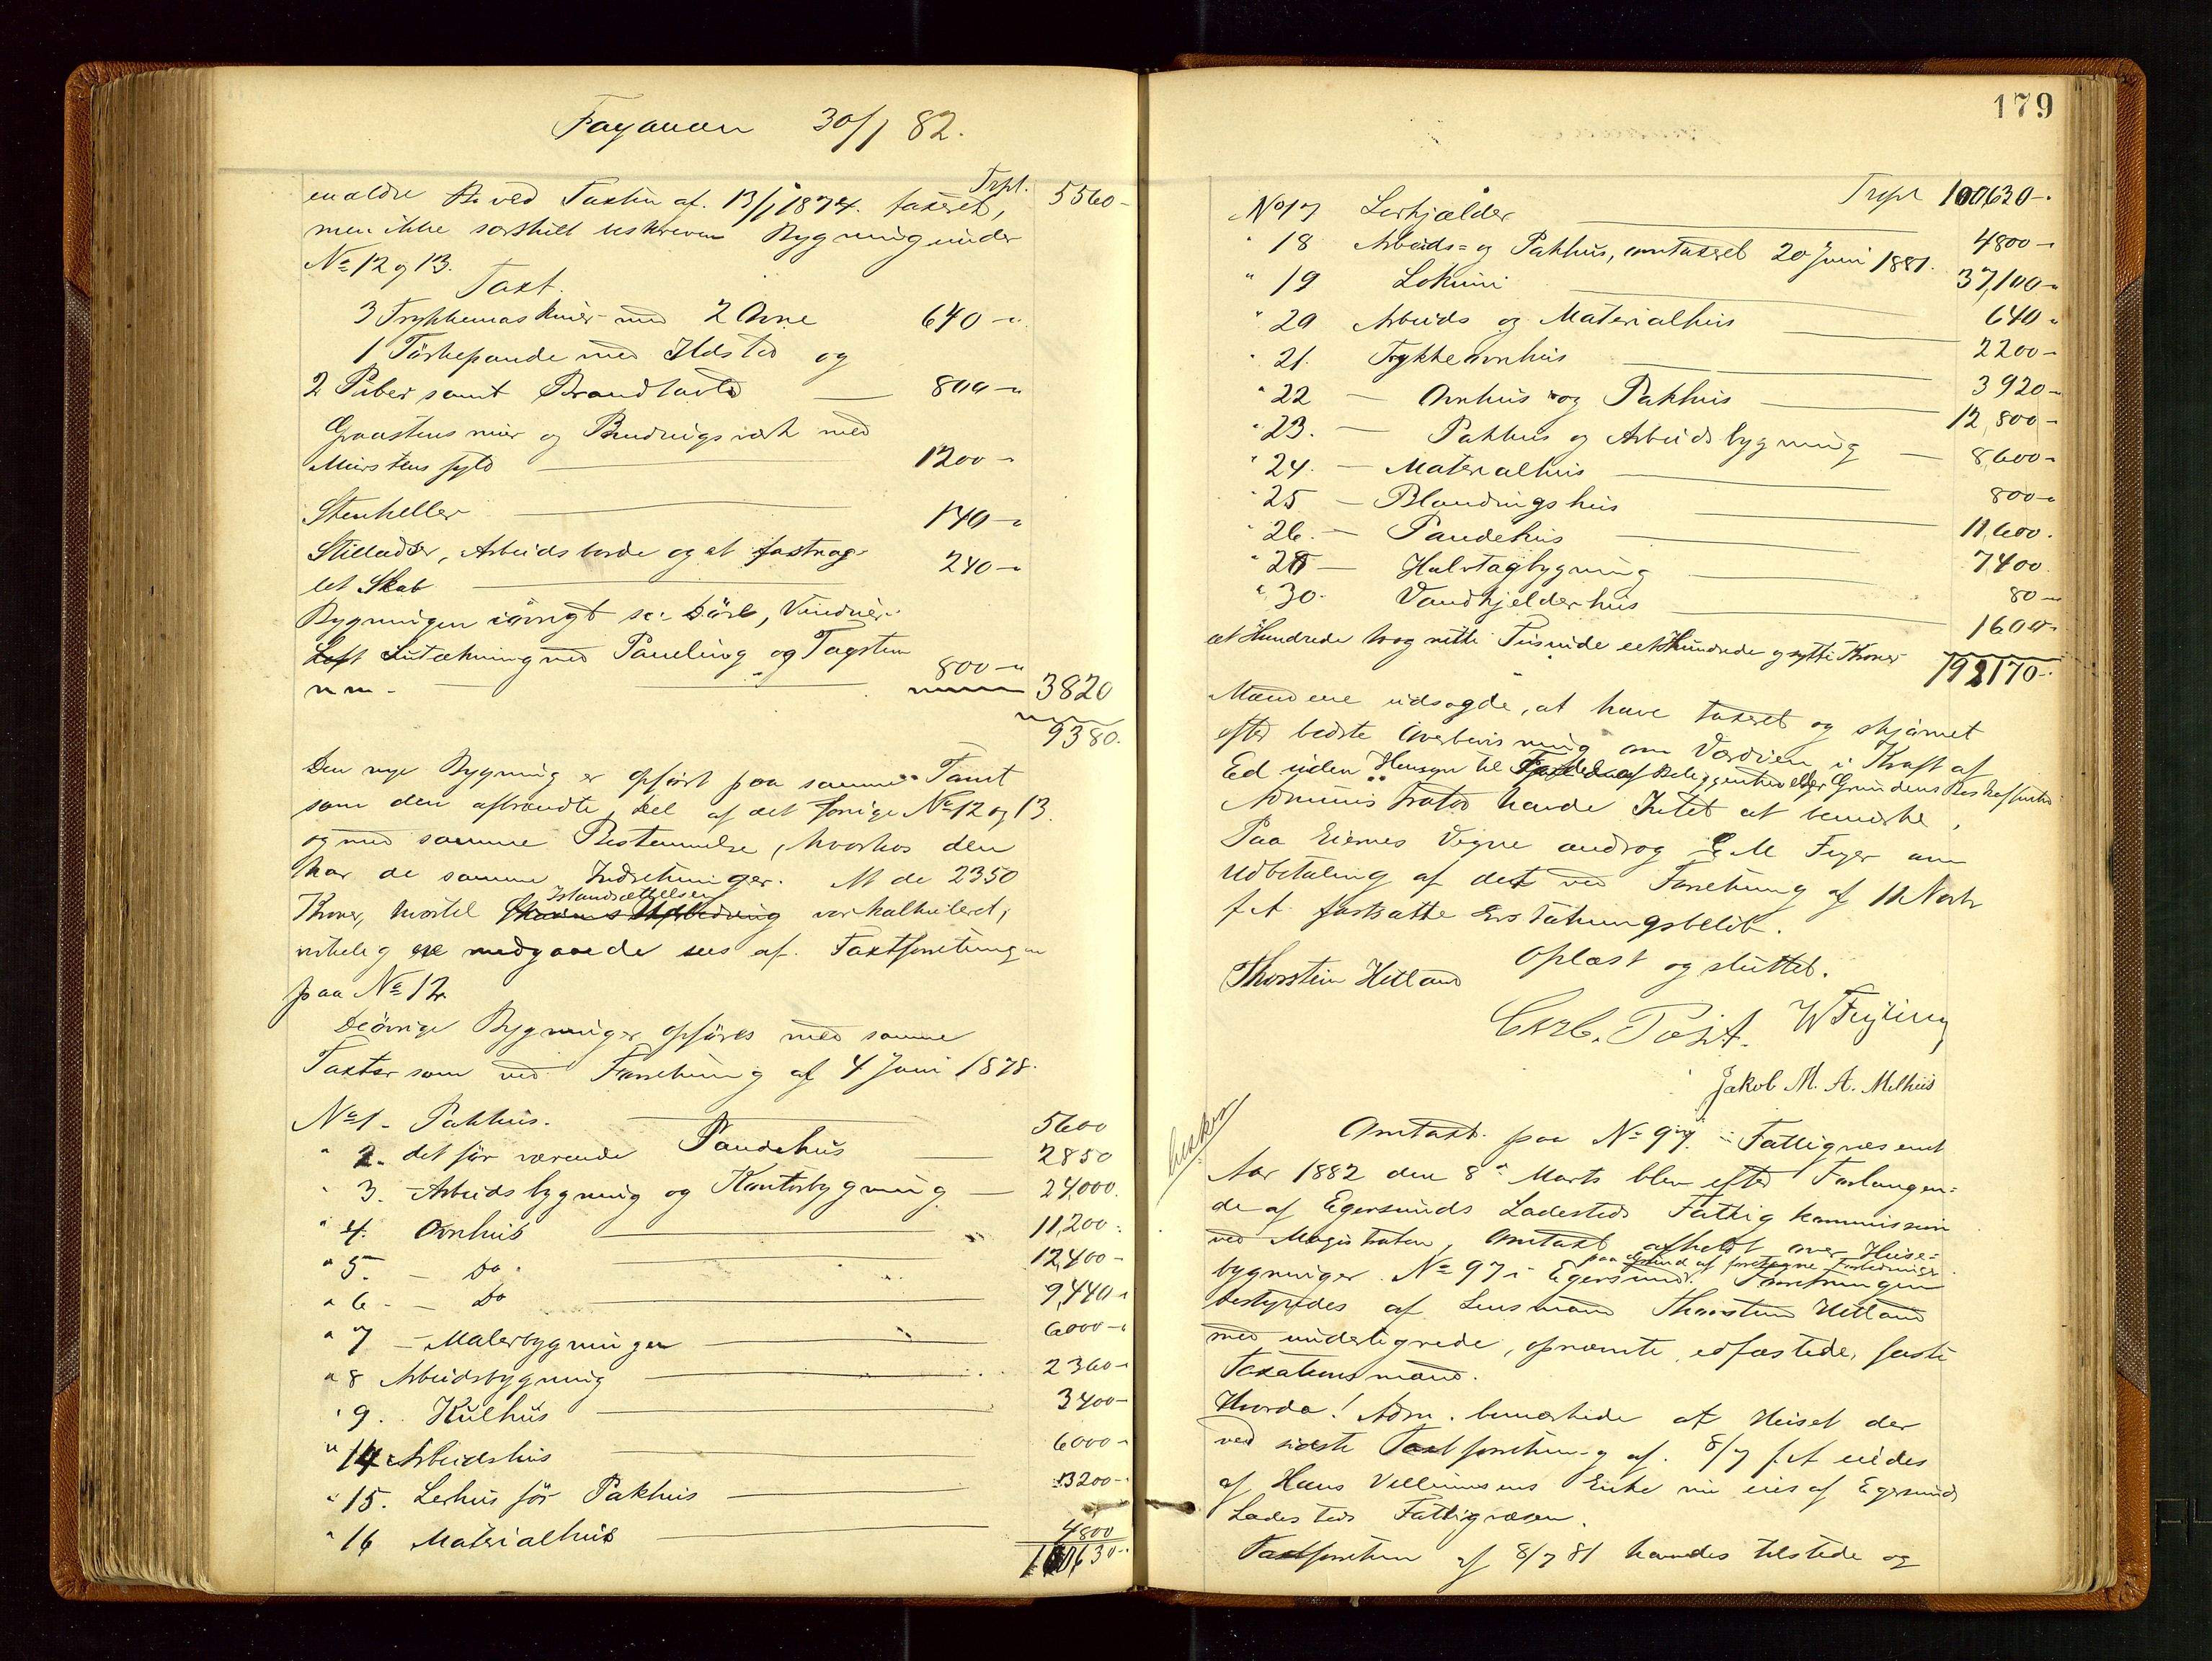 Fayancen 30/1 82.
Trpt. 5560-
en ældre B. ved Taxten af 13/1 1874 taxeret,
men ikke særskilt beskreven Bygning under
No 12 og 13.
Taxt.
3 Trykkemaskiner med 2 Ovne 640 -
1 Tørkepande med Ildsted og
2 Piber samt Brandtavle 800 -
Graastensmur og Bindingsværk med
Murstensfyld 1200 -
Stenheller 140 -
Stilladser, Arbeidsborde og et fastnag-
let Skab 240 -
Bygningen iøvrigt s: Døre, Vinduer
Loft Indtækning med Paneling og Tagsten
m m - 800 - 3820
9380.
Den nye Bygning er opført paa samme Tomt
som den afbrændte Del af det forrige No 12 og 13.
og med samme Bestemmelse, hvorhos den
har de samme Indretninger. At de 2350
Kroner, hvortil Istandsættelsen var kalkuleret,
virkelig ere medgaaede sees af Taxtforretningen
paa No 12.
De øvrige Bygninger opføres med samme
Taxter som ved Forretning af 4 Juni 1878.
No 1 - Pakhus. 5600
" 2. det før værende Pandehus 2850
" 3. - Arbeidsbygning og Kontorbygning 24,000.
" 4. Ovnhus 11,200.
" 5. - Do 12,400 -
" 6. - Do 9,440 -
" 7 - Malerbygningen 6000 -
" 8 Arbeidsbygning 2360 -
" 9. Kulhus 3400 -
" 14 Arbeidshus 6000 -
" 15. Lerhus før Pakhus 13200 -
" 16 Materialhus 4800
100,630 -
179
Trpt 100,630 -.
No 17 Lerkjælder 4800 -
" 18 Arbeids- og Pakhus, omtaxeret 20 Juni 1881. 37,100 -
" 19 Lokum 640 -
" 20 Arbeids og Materialhus 2200 -
" 21. Trykkeovnhus 3920 -
" 22 - Ovnhus og Pakhus 12,800 -
" 23. - Pakhus og Arbeidsbygning 8,600 -
" 24. - Materialhus 800 -
" 25 - Blandingshus 11,600.
" 26. - Pandehus 7400.
- Halvtagbygning 80 -
" 30. Vandkjelderhus 1600 -
et Hundrede to og nitti Tusinde eet Hundrede og sytti Kroner 192170 -.
Mændene udsagde, at have taxeret og skjønnet
efter bedste Overbevisning om Værdien i Kraft af
Ed uden Hensyn til Beliggenhed eller Grundens Beskaffenhed
Administrator havde Intet at bemærke.
Paa Eiernes Vegne androg C M Feyer om
Udbetaling af det ved Forretning af 12 Novbr
f. A. fastsatte Erstatningsbeløb.
Oplæst og sluttet.
Thorstein Hetland
W Feyling
Jakob M. A. Melhus
Omtaxt paa No 97 Fattigvæsenet
Aar 1882 den 8de Marts blev efter Forlangen-
de af Egersunds Ladesteds Fattigkommission
ved Magistraten, Omtaxt afholdt over Huse-
paa Grund af foretagne Forbedringer
bygninger No 97 i Egersund. Forretningen
bestyredes af Lensmand Thorstein Hetland
med undertegnede, opnævnte, edfæstede, faste
Taxationsmænd.
Hvorda! Adm. bemærkede at Huset der
ved sidste Taxtforretning af 8/7 f. A eiedes
af Hans Villumsens Enke nu eies af Egersunds
Ladesteds Fattigvæsen.
Taxtforretn af 8/7 81 havdes tilstede og